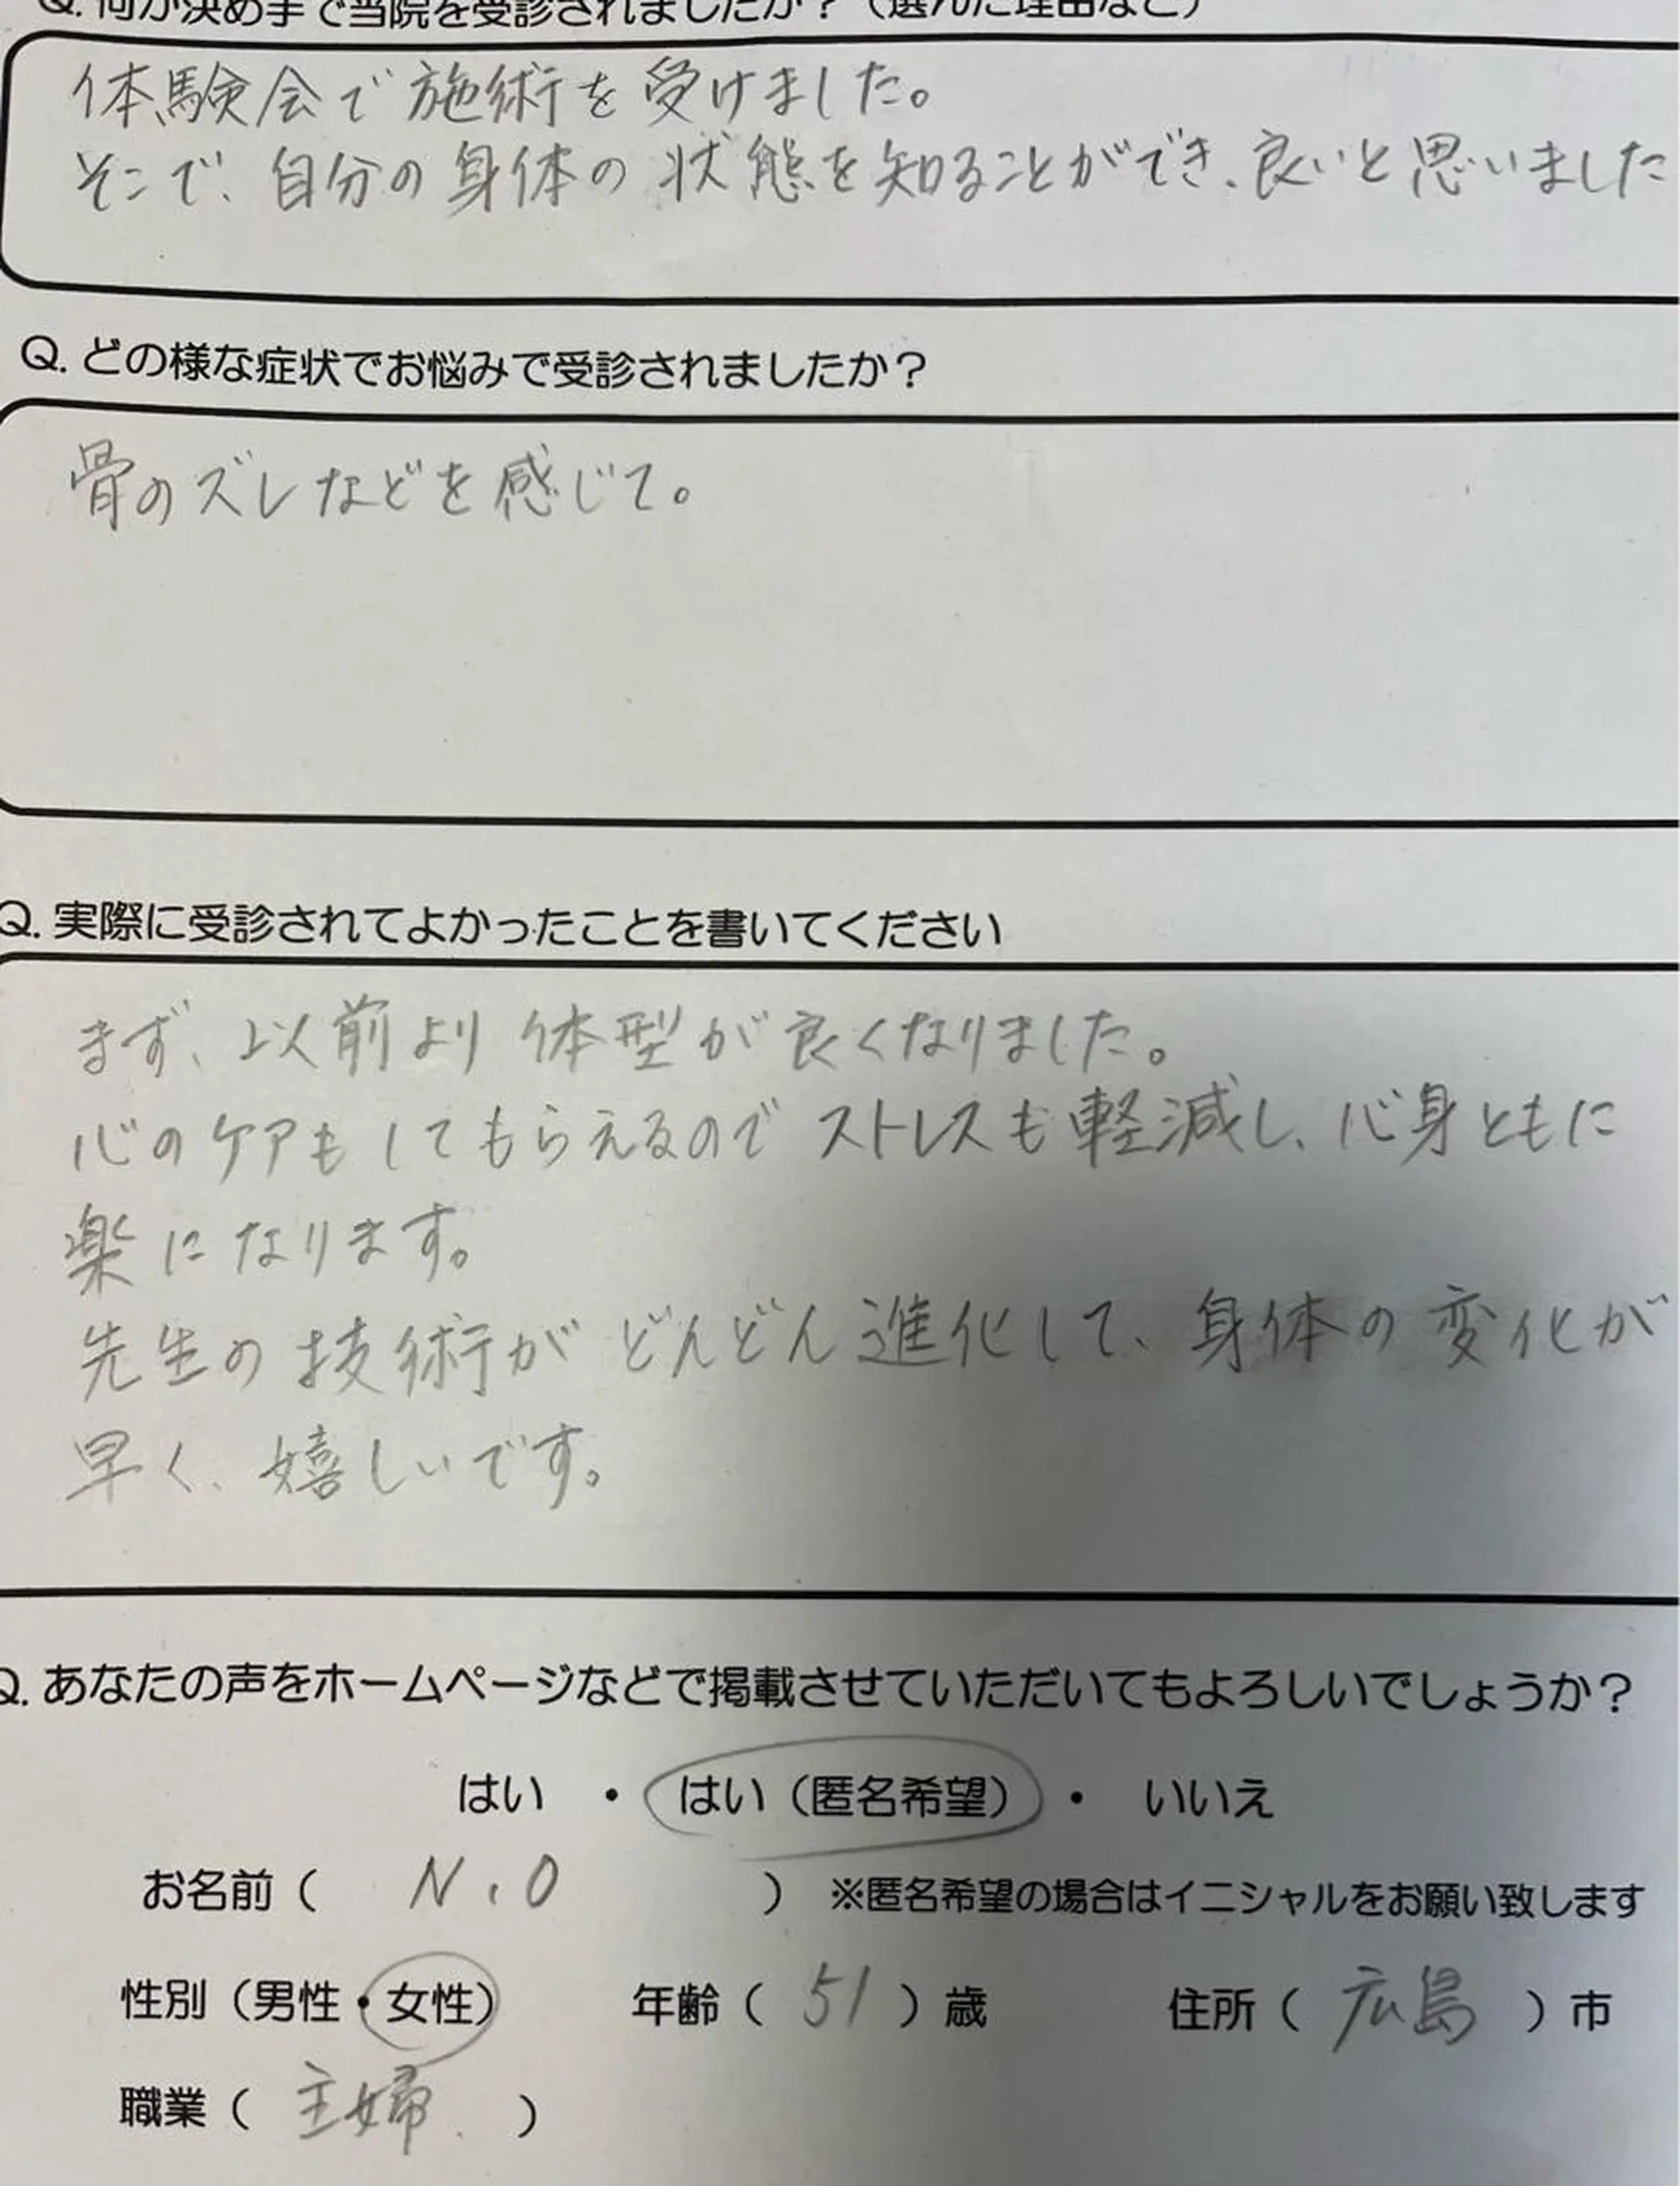 Q. 何が決め手で当院を受診されましたか？（選んだ理由など）
体験会で施術を受けました。
そこで、自分の身体の状態を知ることができ、良いと思いました
Q. どの様な症状でお悩みで受診されましたか？
骨のズレなどを感じて。
Q. 実際に受診されてよかったことを書いてください
まず、以前より体型が良くなりました。
心のケアもしてもらえるのでストレスも軽減し、心身ともに
楽になります。
先生の技術がどんどん進化して、身体の変化が
早く、嬉しいです。
Q. あなたの声をホームページなどで掲載させていただいてもよろしいでしょうか？
はい ・ はい（匿名希望） ・ いいえ
お名前（ N.O ） ※匿名希望の場合はイニシャルをお願い致します
性別（男性・女性） 年齢（ 51 ）歳 住所（ 広島 ）市
職業（ 主婦 ）